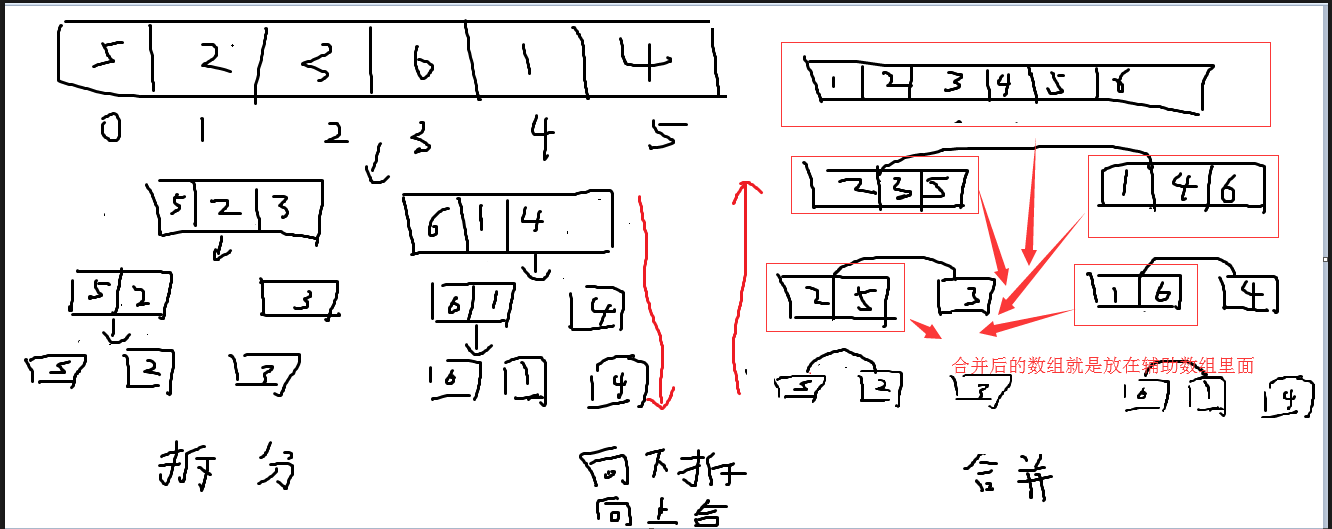 5 2 3 6 1 4
0 1 2 3 4 5
5 2 3
6 1 4
5 2
3
6 1
4
5 2 3
6 1 4
拆分
向下拆
向上合
1 2 3 4 5 6
2 3 5
1 4 6
2 5
3
1 6
4
合并后的数组就是放在辅助数组里面
5 2 3
6 1 4
合并